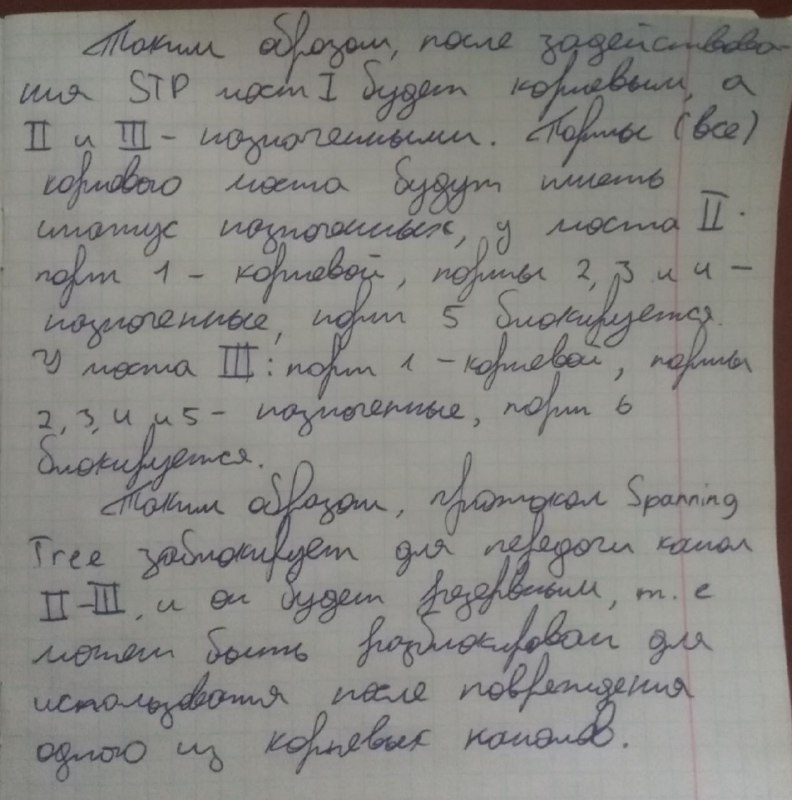 Таким образом, после задействова-
ния STP мост I будет корневым, а
II и III - назначенными. Порты (все)
корневого моста будут иметь
статус назначенных, у моста II:
порт 1 - корневой, порты 2, 3 и 4 -
назначенные, порт 5 блокируется.
У моста III: порт 1 - корневой, порты
2, 3, 4 и 5 - назначенные, порт 6
блокируется.
Таким образом, протокол Spanning
Tree заблокирует для передачи канал
II-III, и он будет резервным, т.е
может быть разблокирован для
использования после повреждения
одного из корневых каналов.